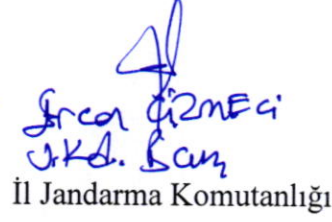 Ercan ÇİZMECİ
J.Kd. Bçvş
İl Jandarma Komutanlığı